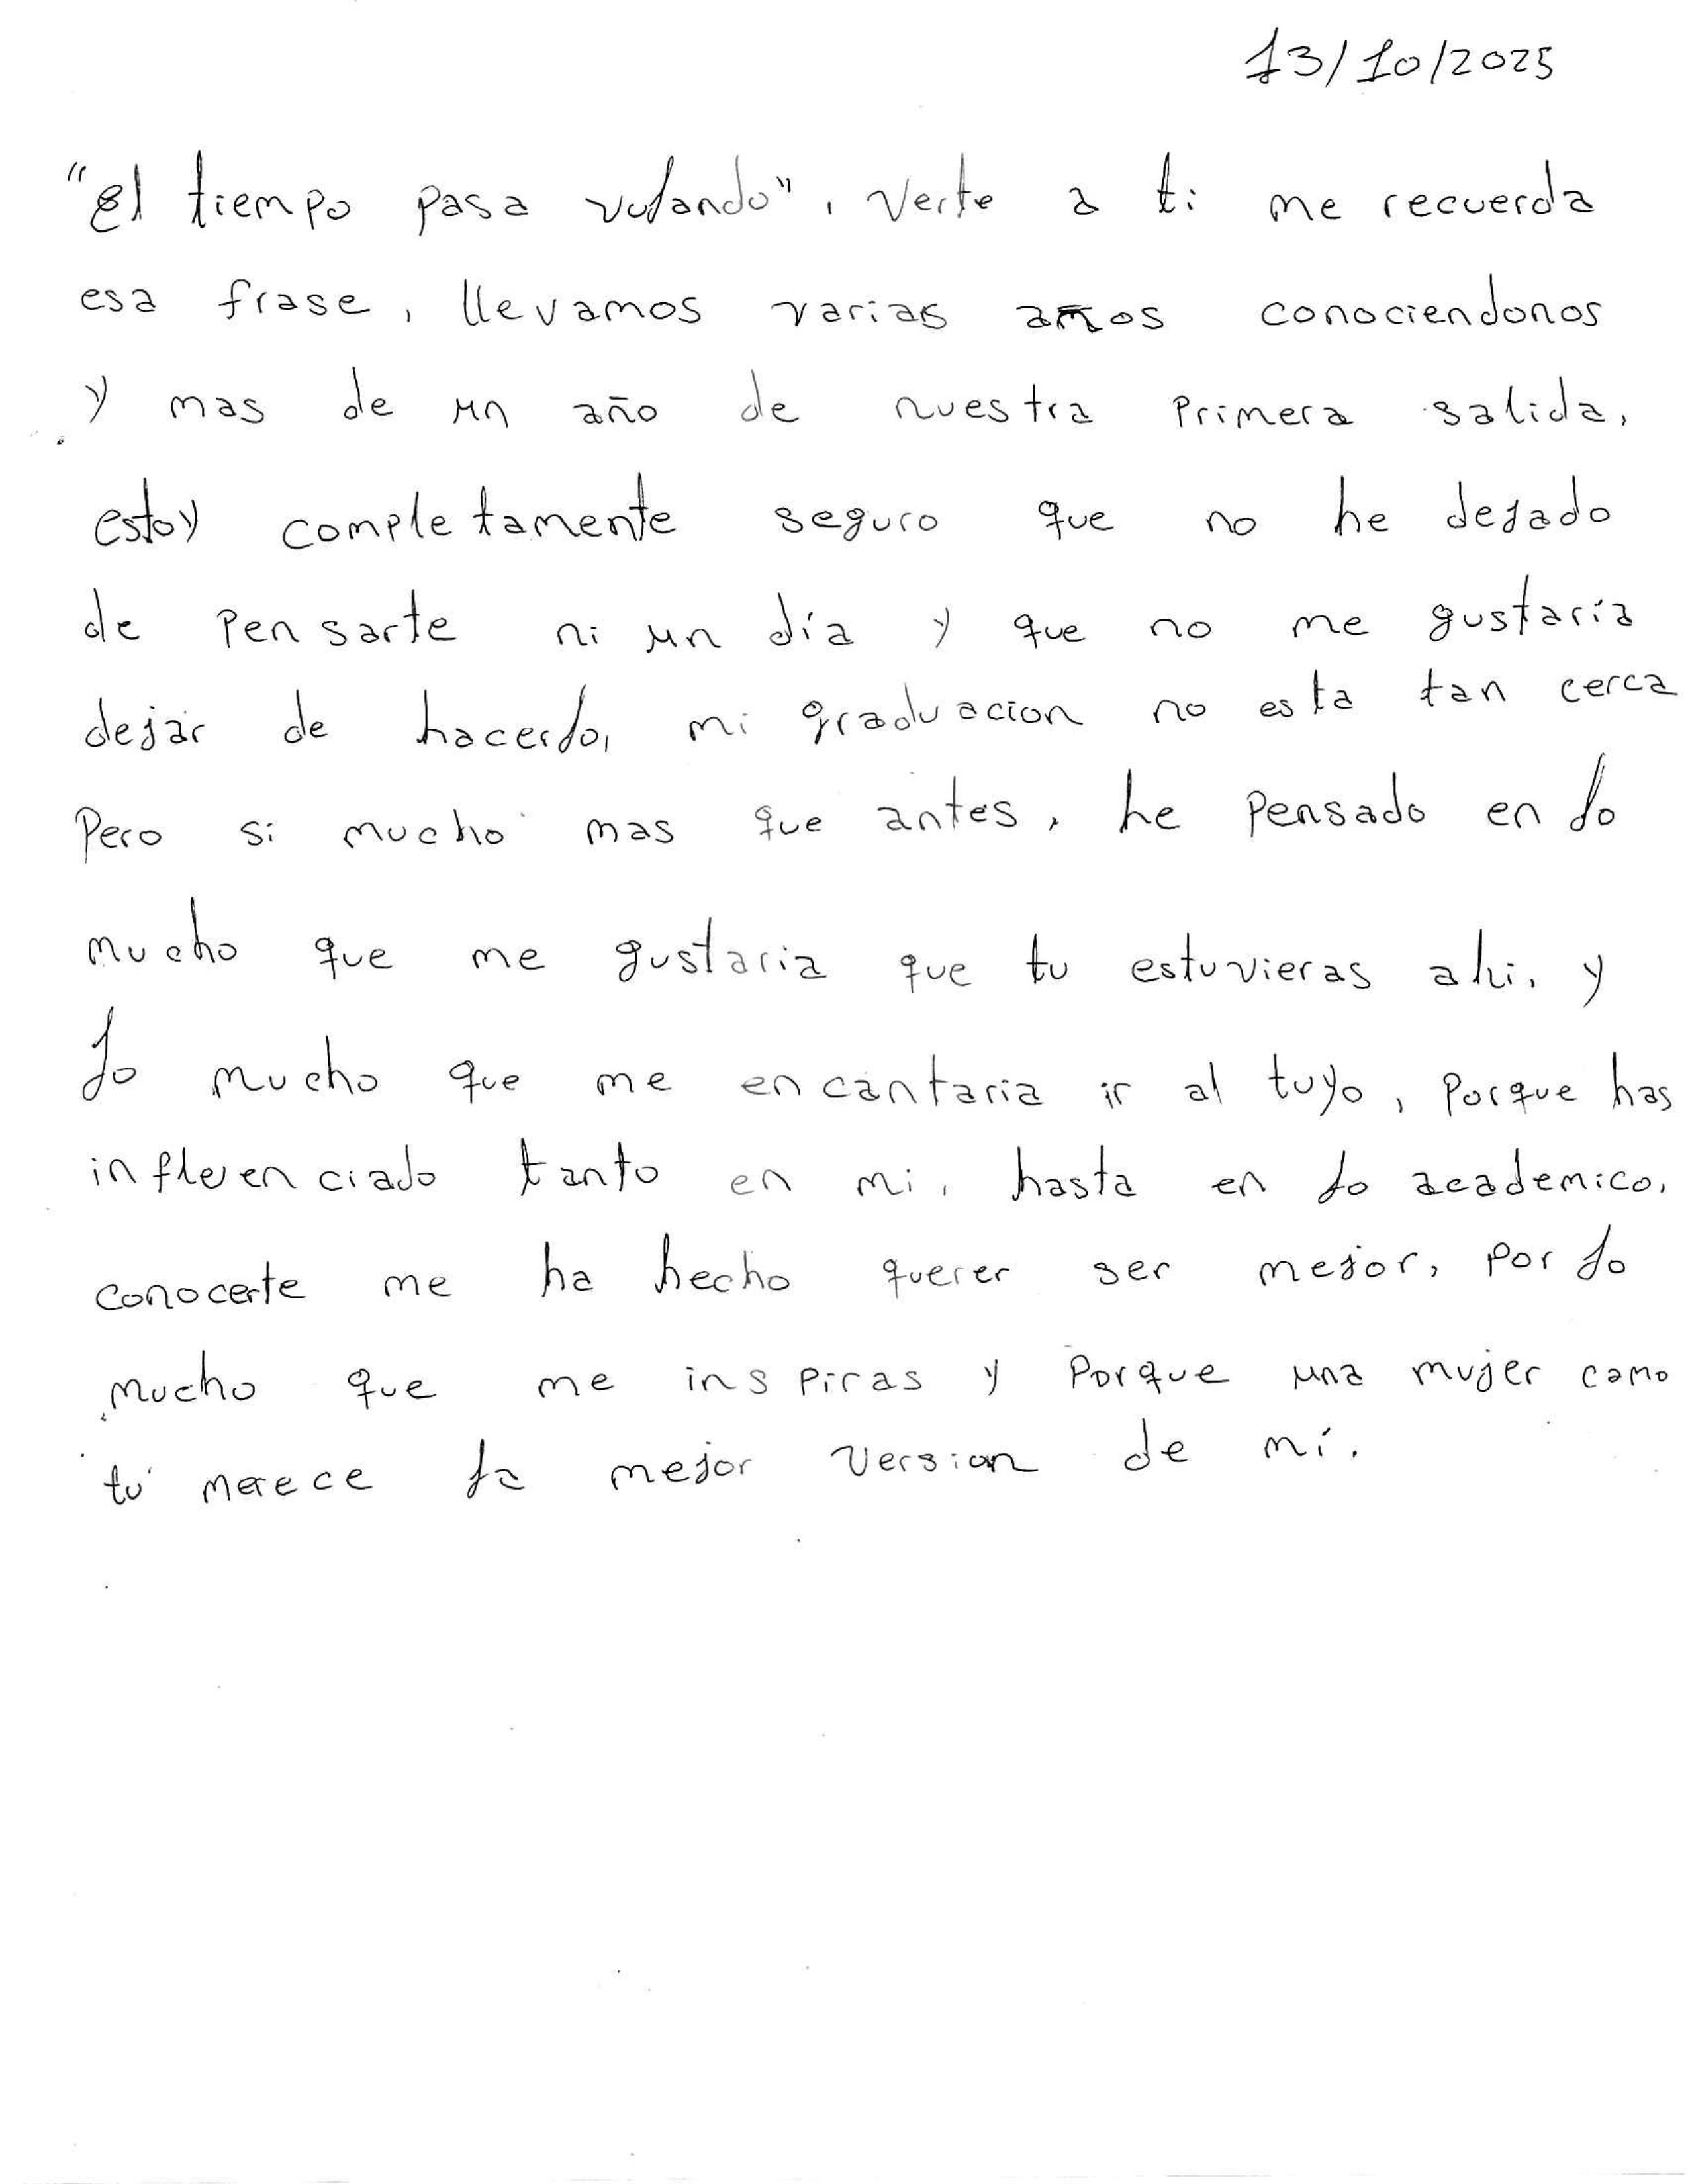 13/10/2025
"El tiempo pasa volando", Verte a ti me recuerda
esa frase, llevamos varias años conociendonos
y mas de un año de nuestra primera salida,
estoy completamente seguro que no he dejado
de pensarte ni un día y que no me gustaría
dejar de hacerlo, mi graduacion no esta tan cerca
Pero si mucho mas que antes, he pensado en lo
mucho que me gustaria que tu estuvieras ahi, y
lo mucho que me encantaria ir al tuyo, Porque has
influenciado tanto en mi, hasta en lo academico,
conocerte me ha hecho querer ser mejor, por lo
mucho que me inspiras y Porque una mujer como
tu merece la mejor version de mí.